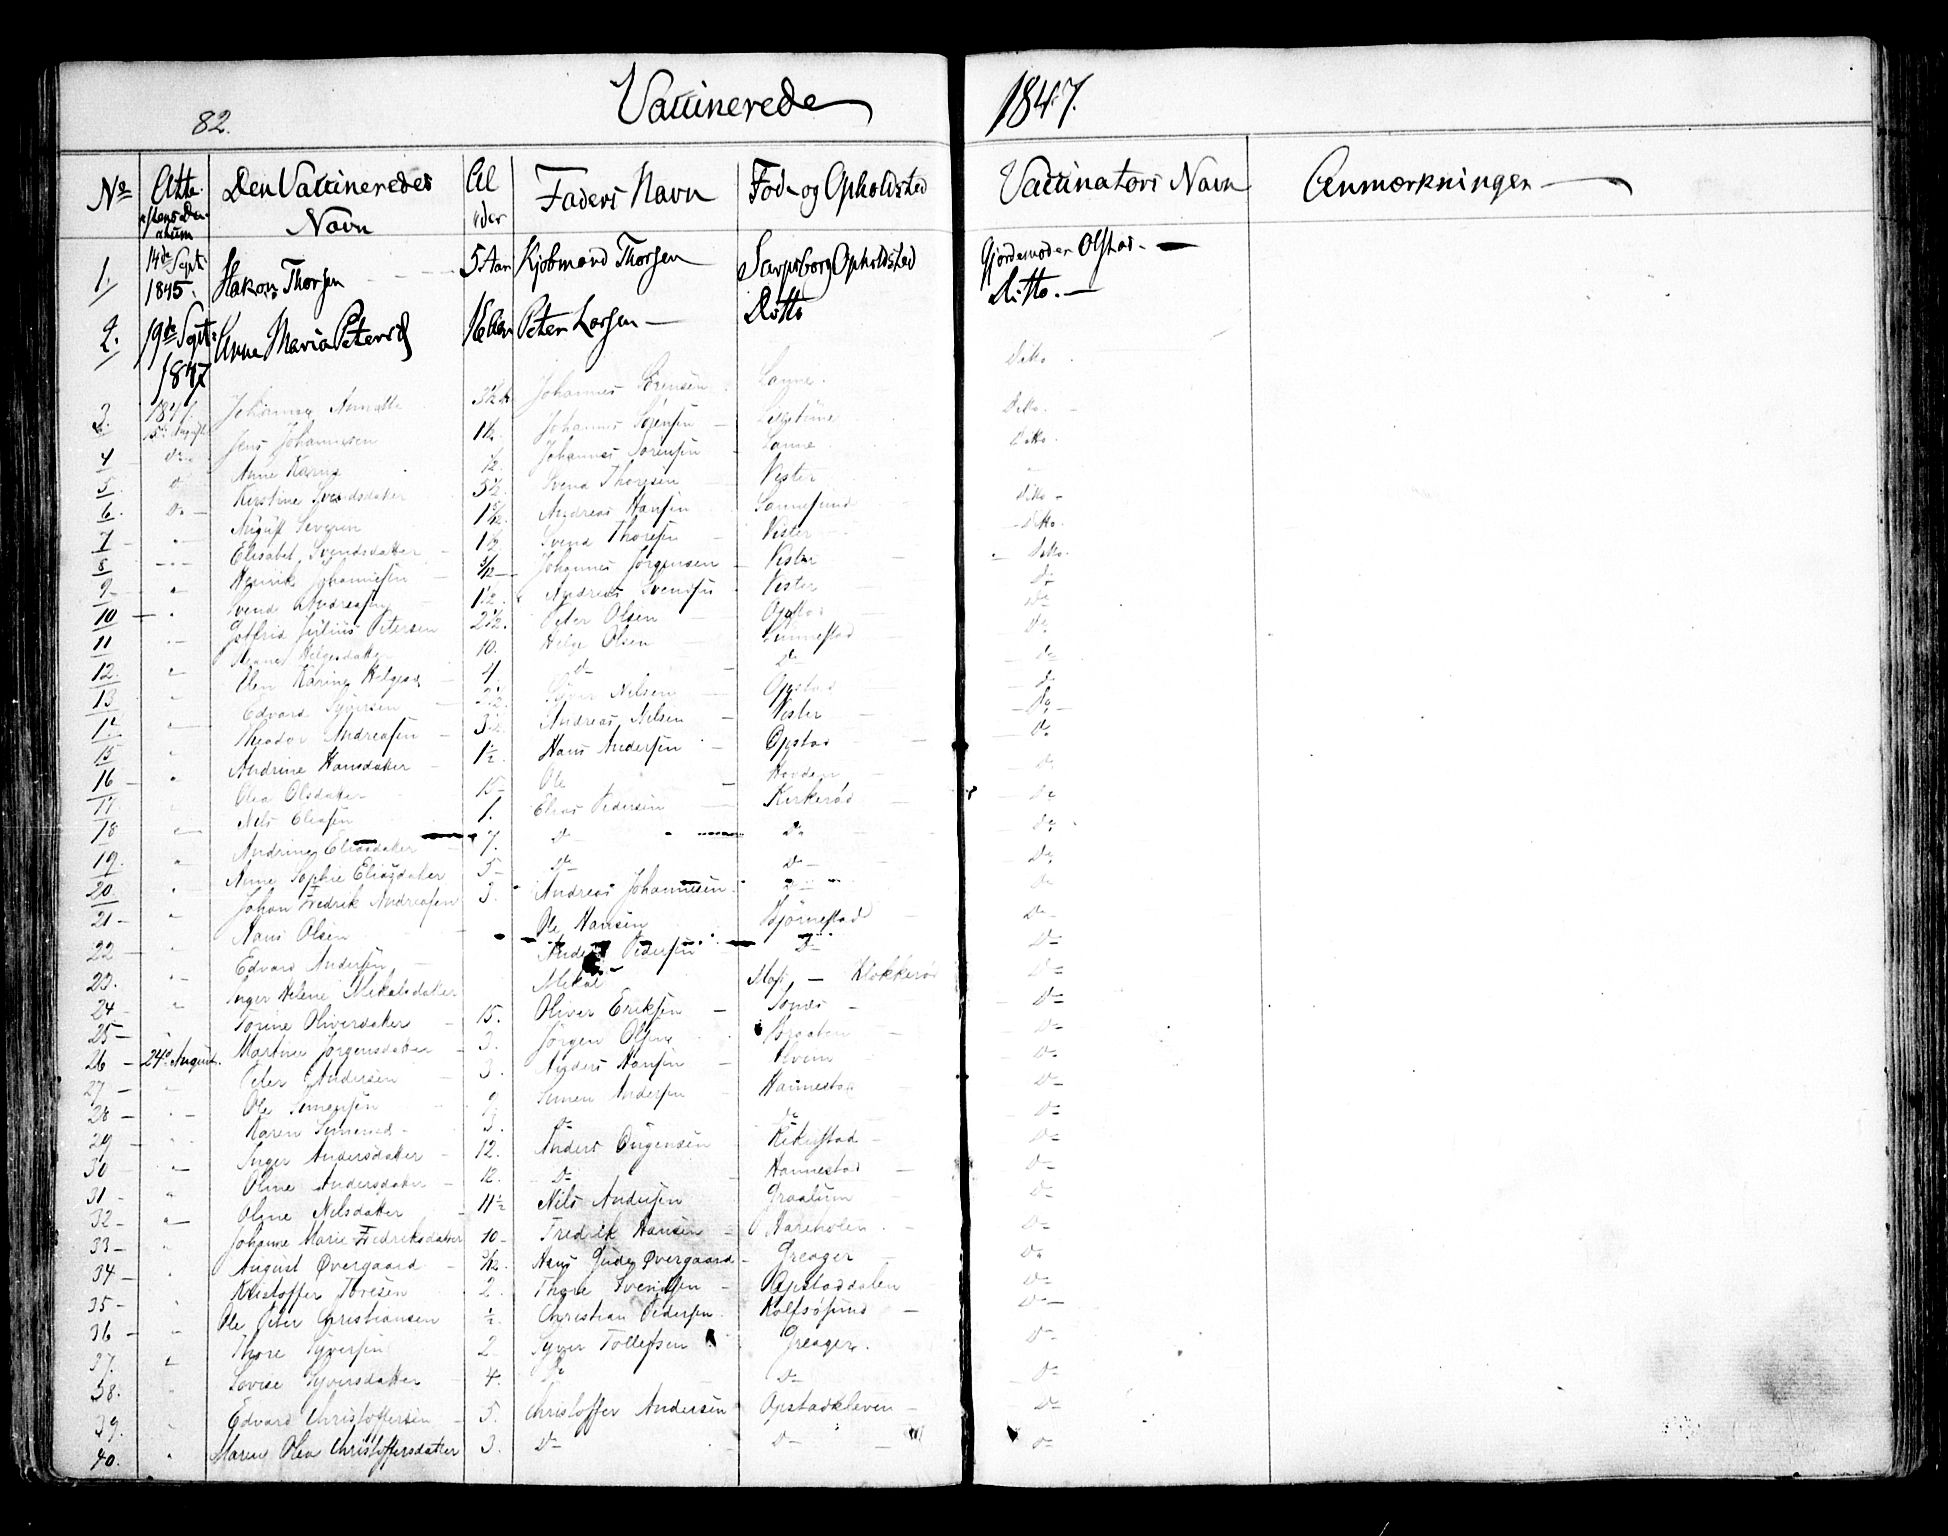 82. Vaccinerede 1847.
No Atte- Den Vaccineredes Al Faders Navn Føde og Opholdsted Vaccinators Navn Anmærkninger
Navn der
1. 14de Sept. 1845. Hakon Thorsen 5 Aar Kjøbmand Thorsen Sarpsborg Opholdsted Gjordemoder Olstad
2. 19de Sept. 1847 Anne Maria Petersd Peter Larsen Ditto Ditto.
3. 1847. 15de August Johannes Sørensen Sanne Ditto
4 do Jens Johannesen 1½ Johannes Sørensen Ditto.
5. Anne Karine ½ Johannes Sørensen Sanne Ditto.
6. Do Kirstine Svendsdatter 5½ Svend Thoresen Vister
7 August Severin Andreas Hansen Sannesund Ditto
8 Elisabet Svendsdatter 1½ Svend Thoresen Vister Ditto.
9 Henrik Johannesen Johannes Jørgensen Vister Ditto.
10 Svend Andreasen 1½. Andreas Svendsen Vister Do
11 Julius Petersen 2½. Peter Olsen Opstad Do
12. Helgesdatter 10. Helge Olsen Sunnestad Do
13 Karine Helgesd 4. Do Do Do
14 Edvard Syversen Syver Nilsen Opstad Do
15 Theodor Andreasen 3½ Andreas Nilsen Vister Do
16 Andrine Hansdatter 1½. Hans Andersen Opstad Do
17 Olea Olsdatter 15 Ole Hovden Do
18 Nils Eliasen 1. Elias Pedersen Kirkerød Do
19. Andrine Eliasdatter 7. Do Do Do
20. Anne Sophie Eliasdatter 5 Do Do Do
21 Johan Fredrik Andreasen 3. Andreas Johannesen Do
22 Hans Olsen Ole Hansen Bjørnestad Do
23. Edvard Andersen Anders Pedersen Do Do
24 Inger Helene Mikalsdatter Mikal Moss Klokkerød Do
25 Torine Oliversdatter 15. Oliver Eriksen Sones Do
26 24d August. Martine Jørgensdatter 3. Jørgen Olsen Braaten Do
27 Peter Andersen 3. Anders Hansen Do
28 Ole Simensen 9 Simen Andersen Hannestad Do
29 Karen Simensd 3. Do Do Do
30 Inger Andersdatter 12. Anders Do
31 Oline Andersdatter 12. Do Hannestad Do
32 Oline Nilsdatter 11½ Nils Andersen Graalum Do
33 Johanne Marie Fredriksdatter 10 Fredrik Hansen Hareholen Do
34 August Øvergaard Hans Gude Øvergaard Greager Do
35 Kristoffer Toresen 2. Thore Svendsen Opstaddalen Do
36 Ole Peter Christiansen ½. Christian Pedersen Rolfsøsund Do
37. Thore Syversen 2 Syver Tollefsen Greager. Do
38. Lovise Syversdatter 4. Do Do Do
39. Edvard Christoffersen 5. Christoffer Andersen Opstadkleven Do
40. Maren Olea Christoffersdatter 3. Do Do Do